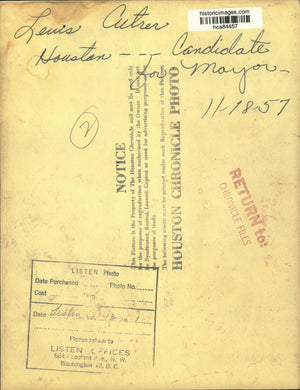 historicimages.com
hca84457
Lewis Cutrer
Houston - Candidate
for Mayor -
11-18-57
2
NOTICE
This Picture is the Property of The Houston Chronicle and may be used only
for the purposes of reproduction when authorized by the Owner.
be Syndicated, Rented, Loaned, Copied or used for advertising purposes
the purposes of trade.
The following credit must be printed under each Reproduction of this Picture
HOUSTON CHRONICLE PHOTO
RETURN to:
CHRONICLE FILES
LISTEN Photo
Date Purchased Photo No.
Cost
Date Listen
Please return to
LISTEN OFFICES
Washington 12, D. C.